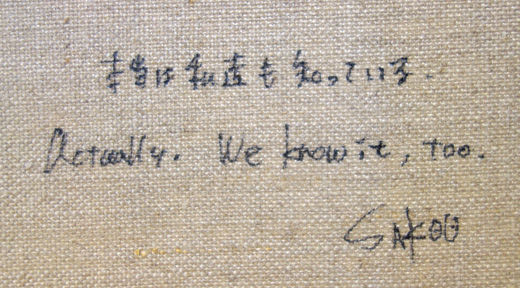 本当は私達も知っている.
Actually. We know it, too.